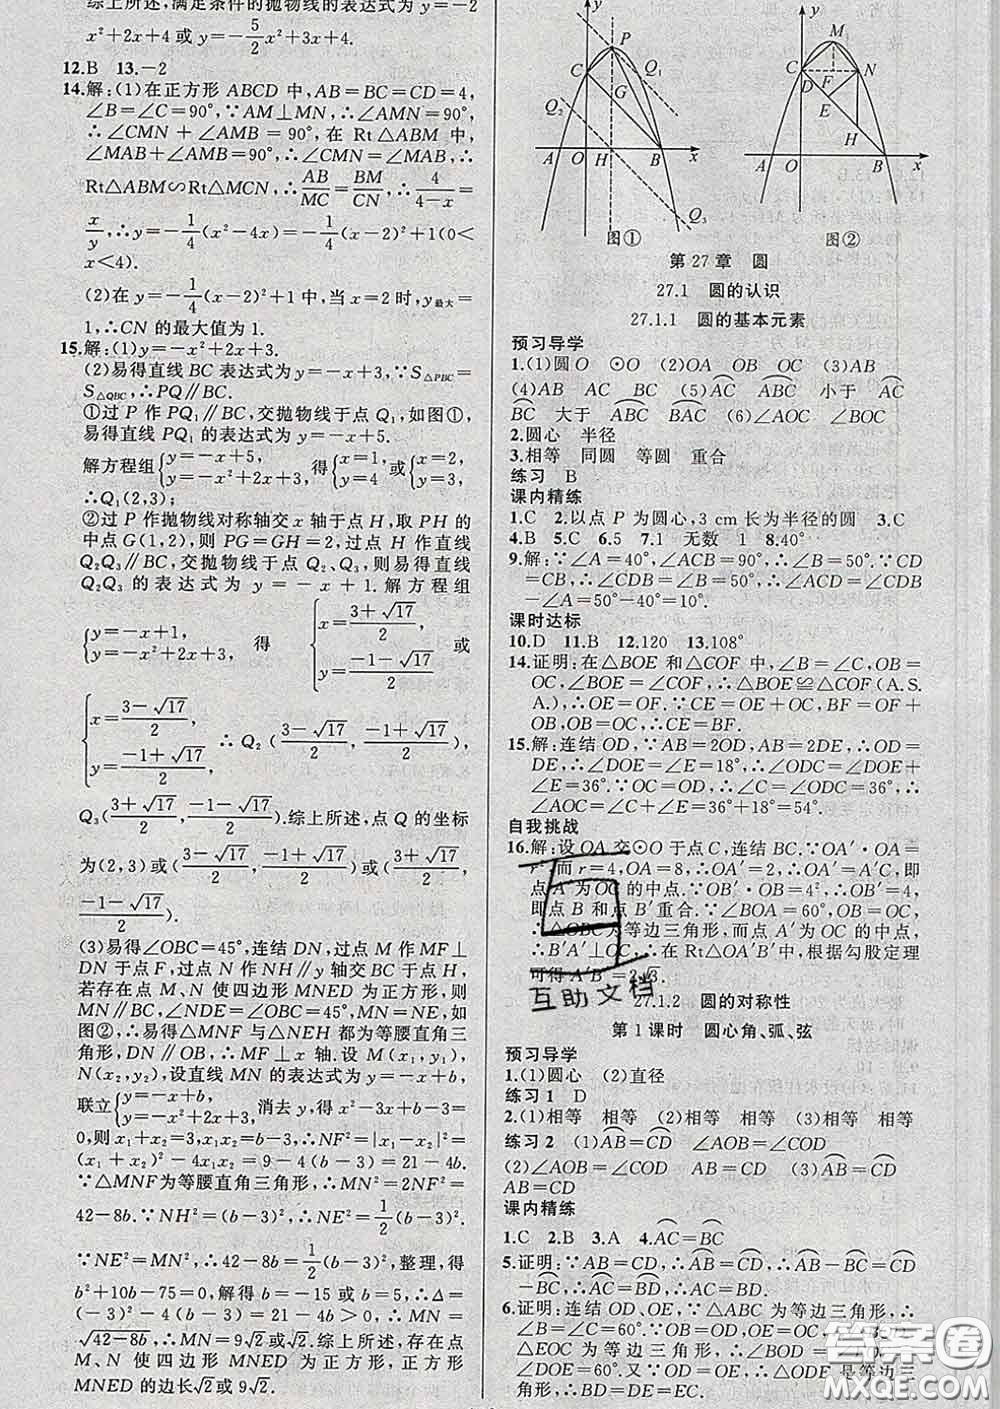 综上所述,满足条件的抛物线的表达式为 y=-2
x²+2x+4 或 y=-5/2x²+3x+4.
12.B 13.-2
14.解:(1)在正方形 ABCD 中,AB=BC=CD=4,
∠B=∠C=90°,∵AM⊥MN,∴∠AMN=90°,
∴∠CMN+∠AMB=90°,在 Rt△ABM 中,
∠MAB+∠AMB=90°,∴∠CMN=∠MAB,∴
Rt△ABM∽Rt△MCN,∴AB/MC=BM/CN,∴4/(4-x)=
x/y,∴y=-1/4(x²-4x)=-1/4(x-2)²+1(0<
x<4).
(2)在 y=-1/4(x-2)²+1 中,当 x=2 时,y最大=
1,∴CN 的最大值为 1.
15.解:(1)y=-x²+2x+3.
(2)易得直线 BC 表达式为 y=-x+3,∵S△PBC=
S△QBC,∴PQ∥BC.
①过 P 作 PQ₁∥BC,交抛物线于点 Q₁,如图①,
易得直线 PQ₁ 的表达式为 y=-x+5.
解方程组{y=-x+5, y=-x²+2x+3, 得{x=1, y=4 或{x=2, y=3,
∴Q₁(2,3);
②过 P 作抛物线对称轴交 x 轴于点 H,取 PH 的
中点 G(1,2),则 PG=GH=2,过点 G 作直线
Q₂Q₃∥BC,交抛物线于点 Q₂、Q₃,则易得直线
Q₂Q₃ 的表达式为 y=-x+1.解方程组
{y=-x+1, y=-x²+2x+3, 得 {x=(3+√17)/2, y=(-1-√17)/2 或
{x=(3-√17)/2, y=(-1+√17)/2, ∴Q₂((3-√17)/2,(-1+√17)/2),
Q₃((3+√17)/2,(-1-√17)/2).综上所述,点 Q 的坐标
为(2,3)或((3-√17)/2,(-1+√17)/2)或((3+√17)/2,
(-1-√17)/2).
(3)易得∠OBC=45°,连结 DN,过点 M 作 MF⊥
DN 于点 F,过点 N 作 NH∥y 轴交 BC 于点 H,
若存在点 M、N 使四边形 MNED 为正方形,则
∠MNE=90°,∠NDE=∠OBC=45°,MN=NE,如
图②,∴易得△MNF 与△NEH 都为等腰直角三
角形,DN∥OB,∴MF⊥x 轴.设 M(x₁,y₁),
N(x₂,y₂),设直线 MN 的表达式为 y=-x+b,
联立{y=-x+b, y=-x²+2x+3, 消去 y,得 x²-3x+b-3=
0,则 x₁+x₂=3,x₁x₂=b-3,∴NF²=|x₁-x₂|²=
(x₁+x₂)²-4x₁x₂=9-4(b-3)=21-4b.
∵△MNF 为等腰直角三角形,∴MN²=2NF²=
42-8b.∵NH²=(b-3)²,∴NE²=1/2(b-3)².
∵NE²=MN²,∴42-8b=1/2(b-3)²,整理,得
b²+10b-75=0,解得 b=-15 或 b=5,∵Δ=
(-3)²-4(b-3)=21-4b>0,∴MN=
√(42-8b),∴MN=9√2或√2.综上所述,存在点
M、N 使四边形 MNED 为正方形,正方形
MNED 的边长√2或 9√2.
y P C Q₁ G Q₂ A O H B x Q₃
图①
y M C N D F E H A O B x
图②
第 27 章 圆
27.1 圆的认识
27.1.1 圆的基本元素
预习导学
1.(1)圆 O ⊙O (2)OA OB OC (3)AB
(4)AB AC BC (5)AC ABC 小于 AC
BC 大于 ABC BAC (6)∠AOC ∠BOC
2.圆心 半径
3.相等 同圆 等圆 重合
练习 B
课内精练
1.C 2.以点 P 为圆心,3 cm 长为半径的圆 3.C
4.B 5.C 6.5 7.1 无数 1 8.40°
9.解:∵∠A=40°,∠ACB=90°,∴∠B=50°.∵CD
=CB,∴∠CDB=∠B=50°,∴∠ACD=∠CDB
-∠A=50°-40°=10°.
课时达标
10.D 11.B 12.120 13.108°
14.证明:在△BOE 和△COF 中,∠B=∠C,OB=
OC,∠BOE=∠COF,∴△BOE≌△COF(A.S.
A.),∴OE=OF.∵CE=OE+OC,BF=OF+
OB,OB=OC,∴CE=BF.
15.解:连结 OD,∵AB=2OD,AB=2DE,∴OD=
DE,∴∠DOE=∠E=18°,∴∠ODC=∠DOE+
∠E=36°.∵OC=OD,∴∠C=∠ODC=36°,∴
∠AOC=∠C+∠E=36°+18°=54°.
自我挑战
16.解:设 OA 交⊙O 于点 C,连结 BC.∵OA′·OA=
r²,而 r=4,OA=8,∴OA′=2,∴OA′=A′C,即
点 A′为 OC 的中点.∵OB′·OB=4²,∴OB′=4,
即点 B 和点 B′重合.∵∠BOA=60°,OB=OC,
∴△OBC 为等边三角形,而点 A′为 OC 的中点,
∴B′A′⊥OC,∴在 Rt△OA′B′中,根据勾股定理
可得 A′B′=2√3.
互助文档
27.1.2 圆的对称性
第 1 课时 圆心角、弧、弦
预习导学
1.(1)圆心 (2)直径
练习 1 D
2.(1)相等 相等 (2)相等 相等 (3)相等 相等
练习 2 (1)AB=CD ∠AOB=∠COD
(2)∠AOB=∠COD AB=CD (3)AB=CD
AB=CD
课内精练
1.C 2.B 3.A 4.AC=BC
5.证明:∵AB=CD,∴AB=CD,∴AB-BC=CD
-BC,∴AC=BD,∴AC=BD.
6.证明:连结 OD、OE,∵△ABC 为等边三角形,∴
∠B=∠C=60°.∵OB=OD,OE=OC,∴△OBD、
△EOC 为等边三角形,∴∠BOD=∠EOC=60°,
∴∠DOE=60°.又∵OD=OE,∴△ODE 是等边三
角形,∴BD=DE=EC.
答案圈
MXQE.COM